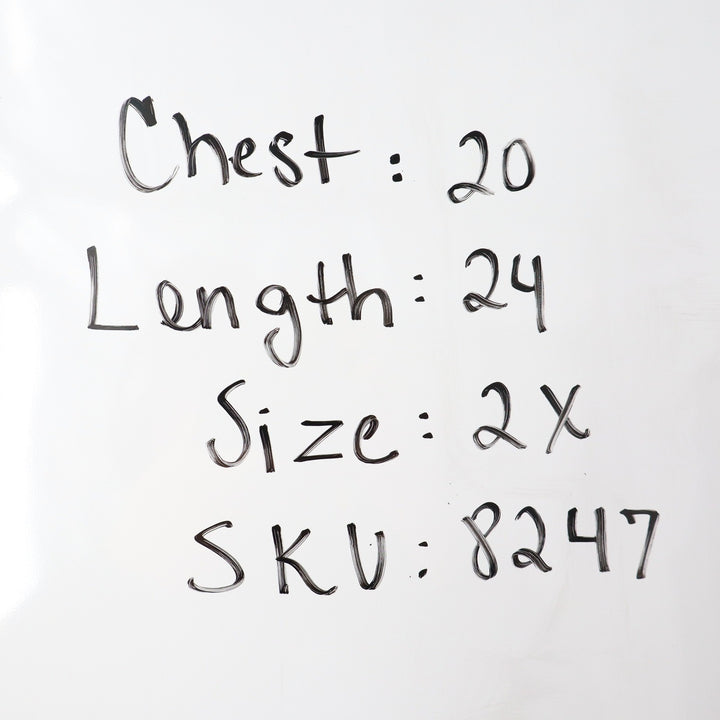 Chest: 20
Length: 24
Size: 2X
SKU: 8247